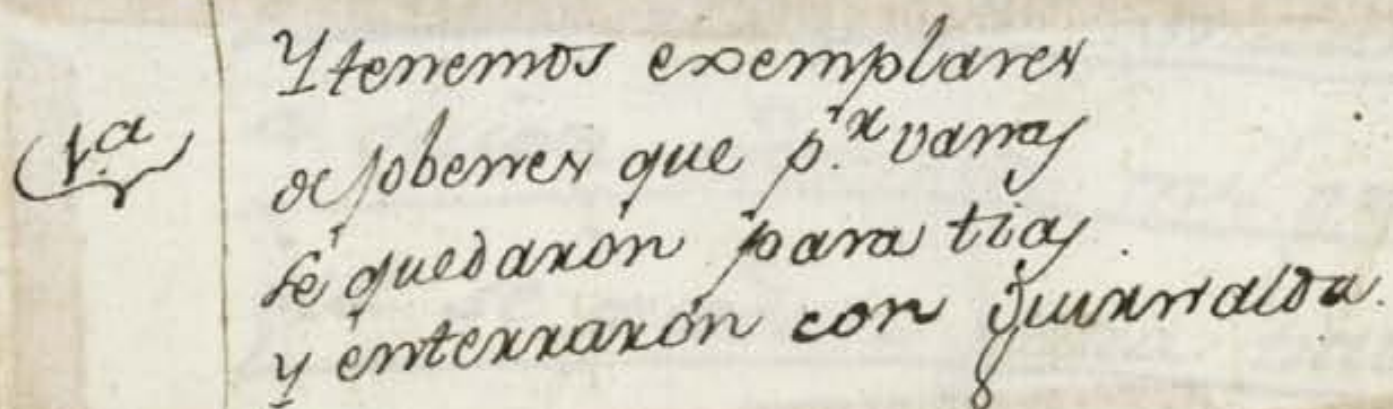 Y tenemos exemplares
1.ª
de jobenes que p.r vanas
se quedarón para tias
y enterrarón con guirnalda.